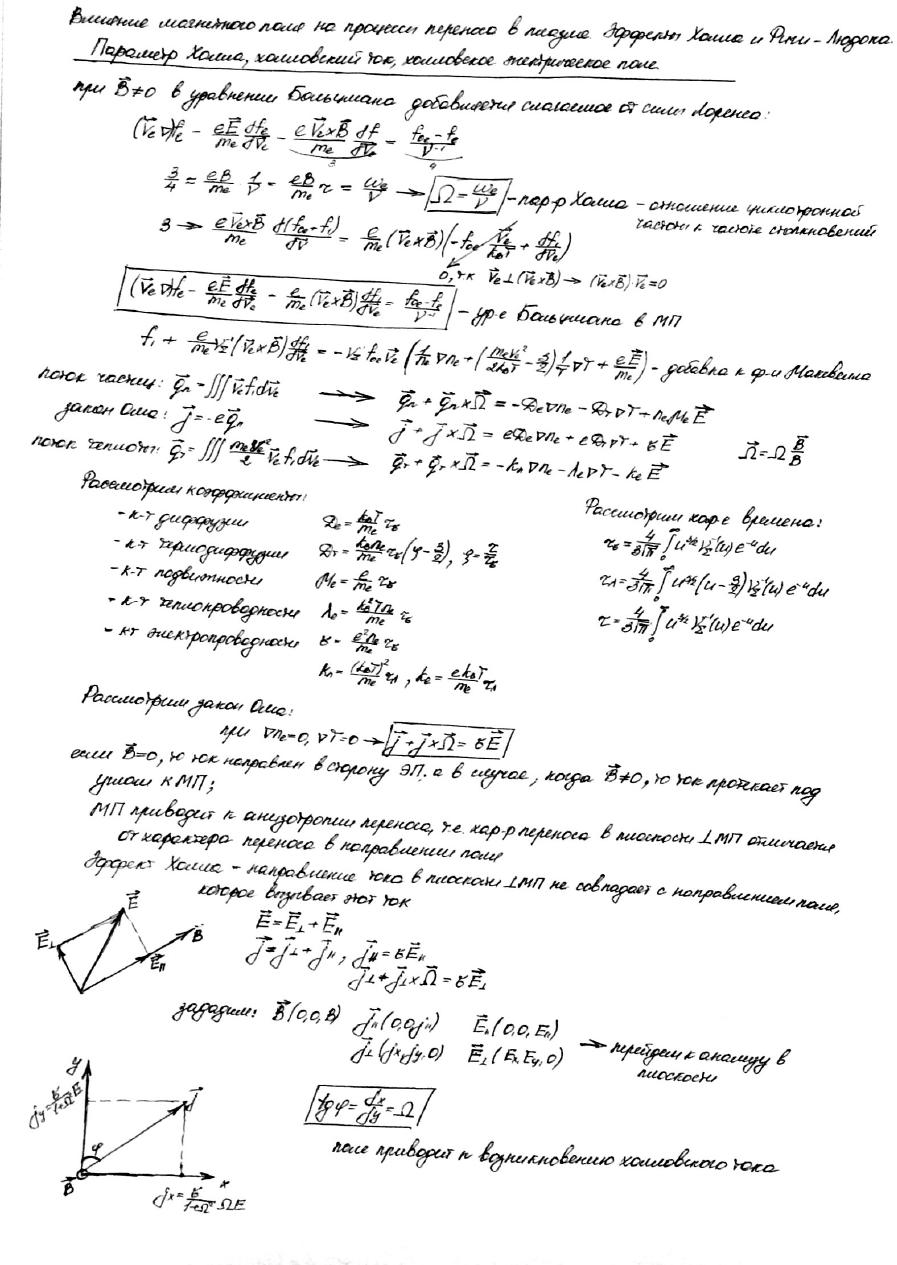 Влияние магнитного поля на процессы переноса в плазме. Эффекты Холла и Риги-Людока.
Параметр Холла, холловский ток, холловское электрическое поле
при B⃗≠0 в уравнении Больцмана добавляется слагаемое от силы Лоренса:
(V⃗e∇)fe − eE⃗/me dfe/dV⃗e − eV⃗e×B⃗/me df/dV⃗e = (f0e − fe)/ν⁻¹
3 4
3/4 = eB/me · 1/ν = eB/me τ = ωe/ν → Ω = ωe/ν – пар-р Холла – отношение циклотронной
частоты к частоте столкновений
3 → eV⃗e×B⃗/me d(f0e−f1)/dV = e/me (V⃗e×B⃗)(−f0e V⃗e/kBT + df1/dV⃗e)
0, т.к V⃗e⊥(V⃗e×B⃗) → (V⃗e×B⃗)·V⃗e=0
(V⃗e∇)fe − eE⃗/me dfe/dV⃗e − e/me (V⃗e×B⃗) df1/dV⃗e = (f0e−fe)/ν⁻¹ – ур-е Больцмана в МП
f1 + e/me ν⁻¹(V⃗e×B⃗) df1/dV⃗e = −ν⁻¹ f0e V⃗e (1/ne ∇ne + (meVe²/2kBT − 3/2) 1/T ∇T + eE⃗/me) – добавка к ф-и Максвелла
поток частиц: g⃗n = ∭V⃗e f1 dV⃗e → g⃗n + g⃗n×Ω⃗ = −De∇ne − DT∇T + neMe E⃗
закон Ома: j⃗ = −eg⃗n → j⃗ + j⃗×Ω⃗ = eDe∇ne + eDT∇T + σE⃗ Ω⃗ = Ω B⃗/B
поток теплоты: g⃗T = ∭ meVe²/2 V⃗e f1 dV⃗e → g⃗T + g⃗T×Ω⃗ = −kn∇ne − λe∇T − ke E⃗
Рассмотрим коэффициенты:
Рассмотрим хар-е времена:
- к-т диффузии De = kBT/me τσ
τσ = 4/3√π ∫₀^∞ u^3/2 ν⁻¹(u) e⁻ᵘdu
- к-т термодиффузии DT = kBne/me τσ (φ − 3/2), φ = τ/τσ
τλ = 4/3√π ∫₀^∞ u^5/2 (u − 3/2) ν⁻¹(u) e⁻ᵘdu
- к-т подвижности Me = e/me τσ
τ = 4/3√π ∫₀^∞ u^5/2 ν⁻¹(u) e⁻ᵘdu
- к-т теплопроводности λe = kB²Tne/me τσ
- к-т электропроводности σ = e²ne/me τσ
kn = (kBT)²/me τλ, ke = ekBT/me τλ
Рассмотрим закон Ома:
при ∇ne=0, ∇T=0 → j⃗ + j⃗×Ω⃗ = σE⃗
если B⃗=0, то ток направлен в сторону ЭП, а в случае, когда B⃗≠0, то ток протекает под
углом к МП;
МП приводит к анизотропии переноса, т.е. хар-р переноса в плоскости ⊥МП отличается
от характера переноса в направлении поля
Эффект Холла – направление тока в плоскости ⊥МП не совпадает с направлением поля,
которое вызывает этот ток
E⃗ E⃗⊥ E⃗∥ B⃗
E⃗ = E⃗⊥ + E⃗∥
j⃗ = j⃗⊥ + j⃗∥, j⃗∥ = σE⃗∥
j⃗⊥ + j⃗⊥×Ω⃗ = σE⃗⊥
зададим: B⃗(0,0,B) j⃗∥(0,0,j∥) E⃗∥(0,0,E∥)
j⃗⊥(jx,jy,0) E⃗⊥(Ex,Ey,0) → перейдем к анализу в
плоскости
y
jy = σ/(1+Ω²) E
j⃗
φ
B⃗
x
jx = σ/(1+Ω²) ΩE
tgφ = jx/jy = Ω
поле приводит к возникновению холловского тока